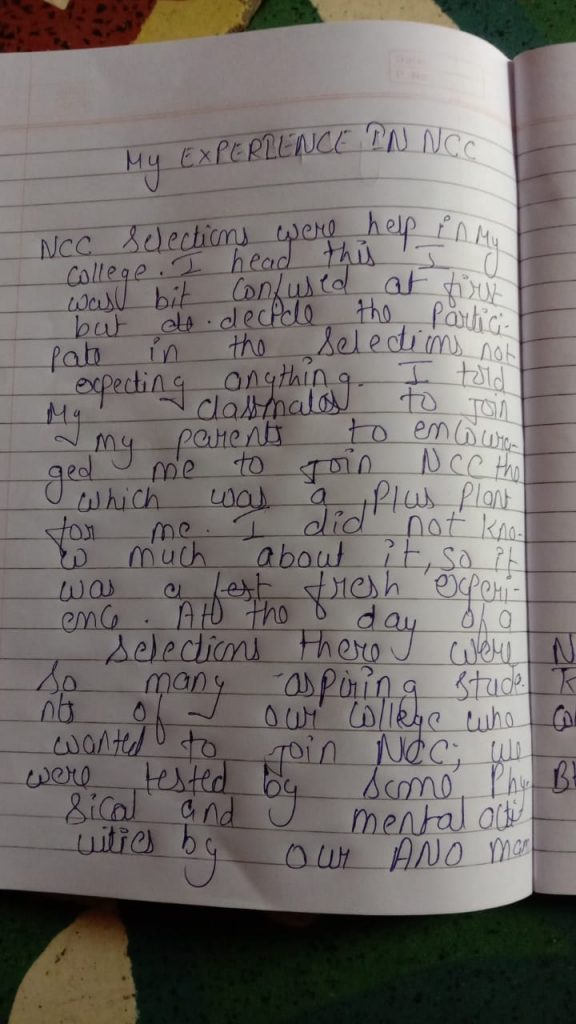 My EXPERIENCE IN NCC
NCC Selections were help in My
college. I head this I
was bit confused at first
but de. decide the partici-
pate in the Selections not
expecting anything. I told
My classmates to join
my parents to encoura-
ged me to join NCC the
which was a Plus Plant
for me. I did not kno-
w much about it, so it
was a fest fresh experi-
ence. At the day of a
Selections there were
So many aspiring stude-
nts of our College who
wanted to join NCC; we
were tested by some Phy-
sical and mental acti
vities by our ANO mam
N
B